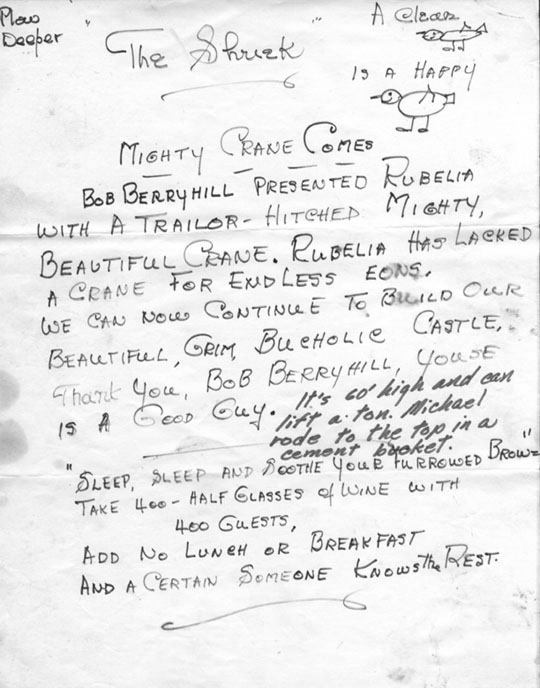 Plow
Deeper
"The Shriek"
A Clean
is a Happy
Mighty Crane Comes
Bob Berryhill presented Rubelia
with a Trailor-Hitched Mighty,
Beautiful Crane. Rubelia has lacked
a Crane for Endless eons.
We can now continue to build our
Beautiful, Grim, Bucholic Castle.
Thank You, Bob Berryhill, youse
is a Good Guy. It's 60' high and can
lift a ton. Michael
rode to the top in a
cement bucket.
"Sleep, Sleep and Soothe your furrowed Brow="
Take 400-half glasses of wine with
400 Guests,
Add No Lunch or Breakfast
And a Certain Someone Knows the Rest.